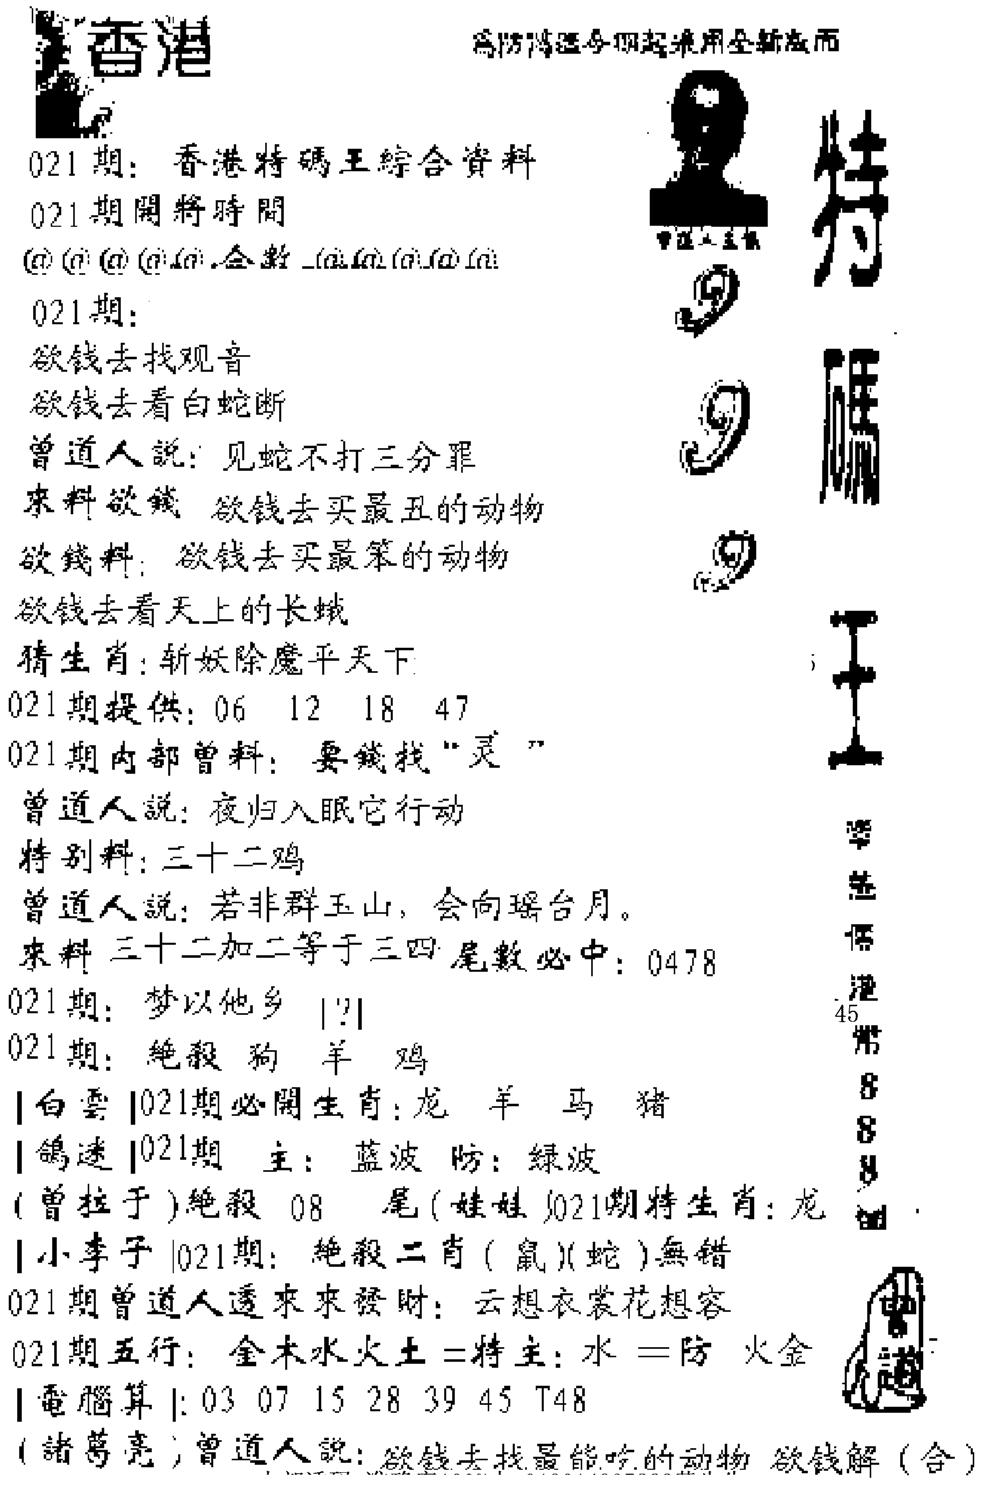 香港
為防鴻運今期起采用全新版面
021期：香港特碼王綜合資料
021期開將時間
@@@@@.合數_@@@@@
021期：
欲钱去找观音
欲钱去看白蛇断
曾道人説：见蛇不打三分罪
來料欲錢 欲钱去买最丑的动物
欲錢料：欲钱去买最笨的动物
欲钱去看天上的长蛾
猜生肖：斩妖除魔平天下
021期提供：06 12 18 47
021期内部曾料：要錢找“灵”
曾道人説：夜归入眠它行动
特别料：三十二鸡
曾道人説：若非群玉山，会向瑶台月。
來料 三十二加二等于三四 尾數必中：0478
021期：梦以他乡 |?|
021期：絶殺 狗 羊 鸡
|白雲|021期必開生肖：龙 羊 马 猪
|鴿迷|021期 主：蓝波 防：绿波
(曾拉于)絶殺 08 尾(娃娃)021期特生肖：龙
|小李子|021期：絶殺二肖(鼠)(蛇)無错
021期曾道人透來來發財：云想衣裳花想容
021期五行：金木水火土=特主：水 =防 火金
|電腦算|：03 07 15 28 39 45 T48
(諸葛亮)曾道人説：欲钱去找最能吃的动物 欲钱解（合）
曾道人主供
9
9
9
特
碼
王
45
888
曾道